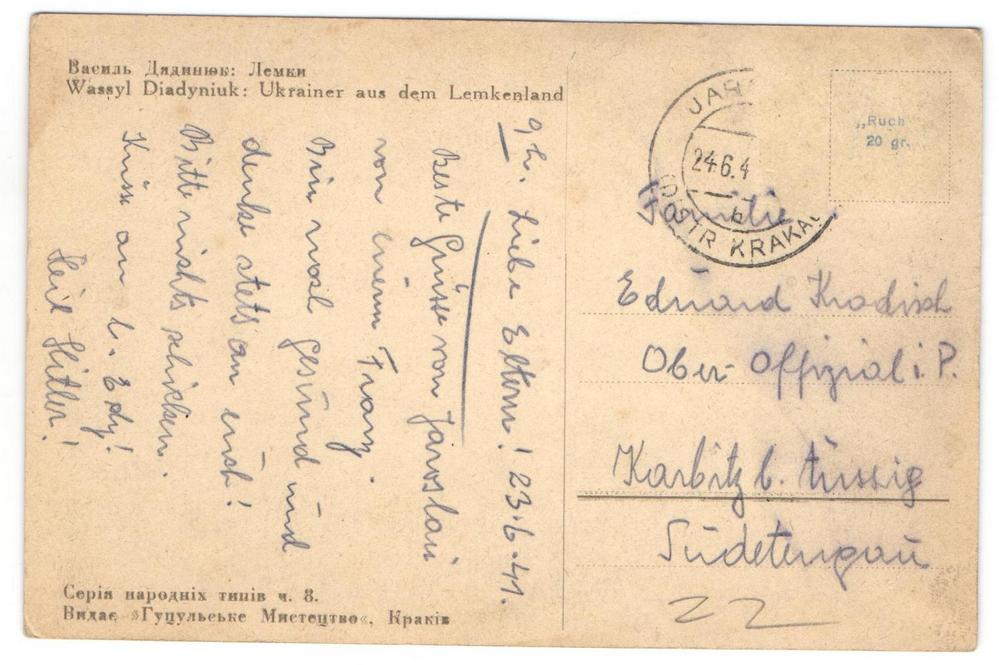 Василь Дядинюк: Лемки
Wassyl Diadyniuk: Ukrainer aus dem Lemkenland
9h. Liebe Eltern! 23.6.41.
Beste Grüsse von Jaroslau
von eurem Franz.
Bin wohl gesund und
denke stets an euch!
Bitte nichts schicken.
Küsse an l. Edy!
Heil Hitler!
Серія народніх типів ч. 8.
Видає »Гуцульське Мистецтво«, Краків
JAR
24.6.4
b
(DISTR KRAKAU
„Ruch"
20 gr.
Familie
Eduard Kradisch
Ober-Offizial i. P.
Karbitz b. Aussig
Sudetengau
22